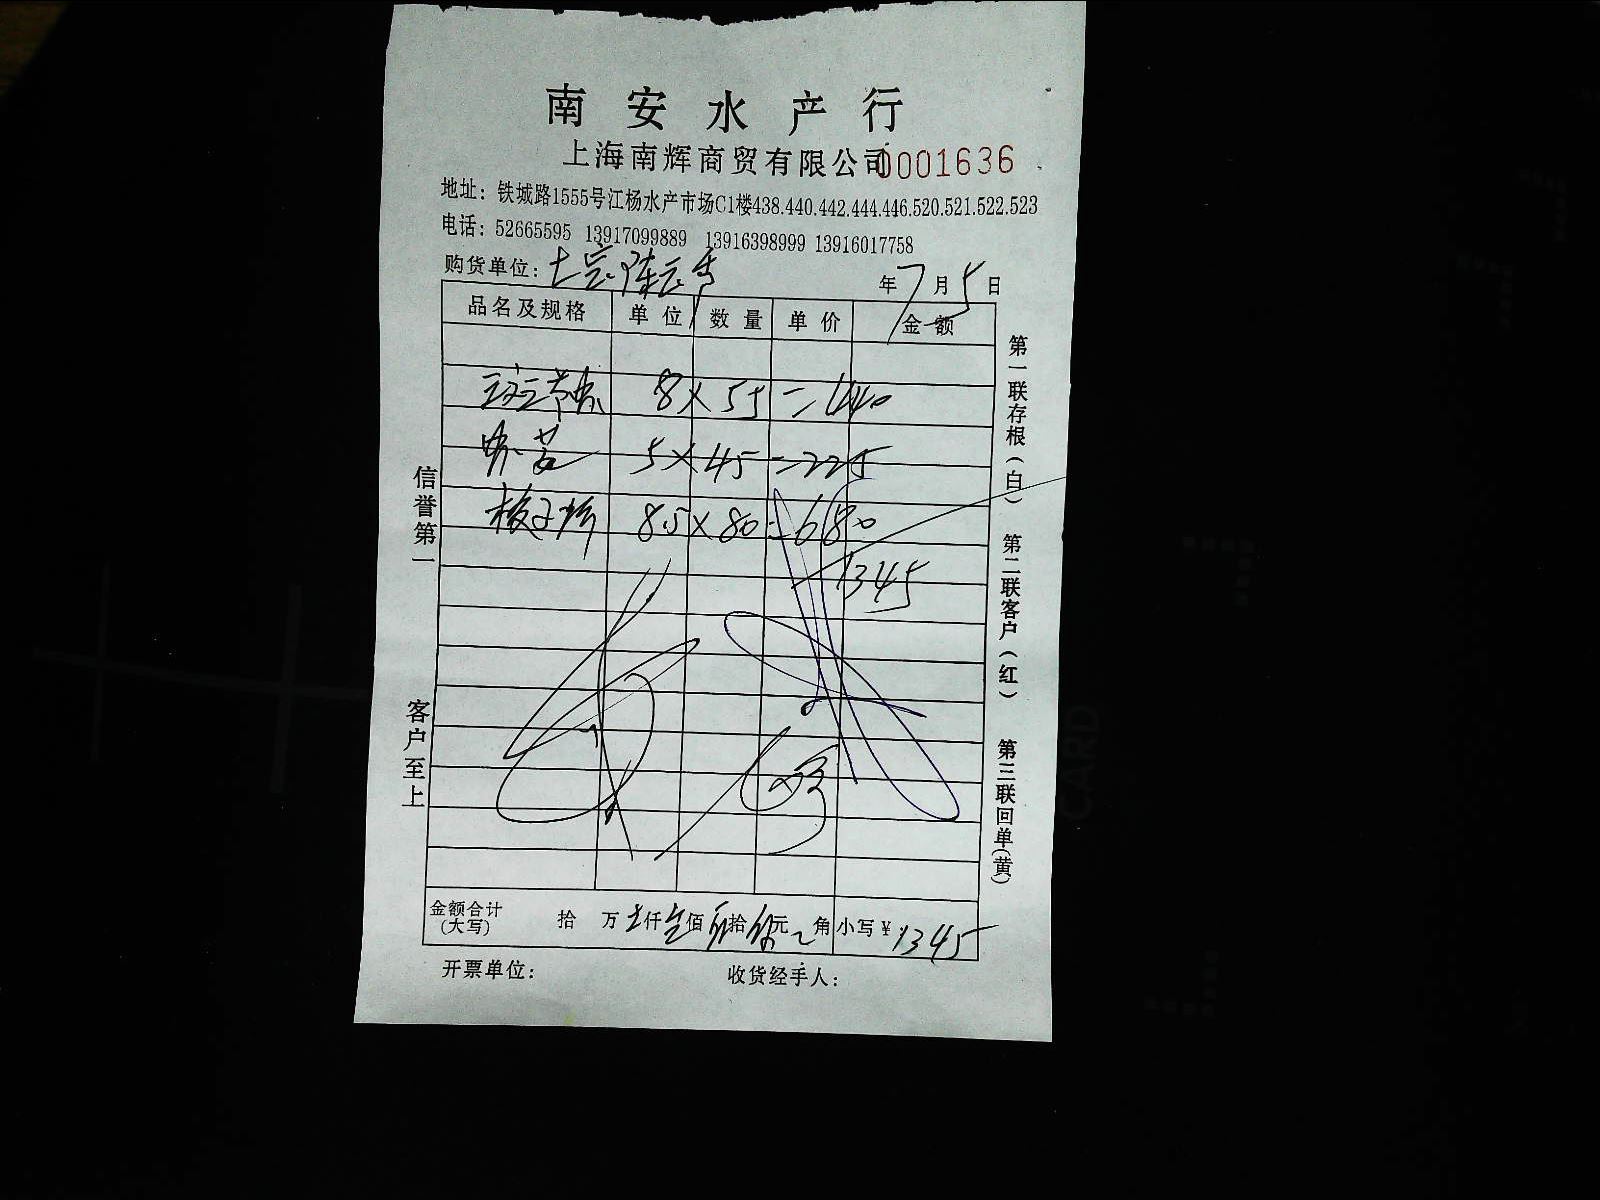 南安水产行
上海南辉商贸有限公司 0001636
地址：铁城路1555号江杨水产市场C1楼438.440.442.444.446.520.521.522.523
电话：52665595 13917099889 13916398999 13916017758
购货单位： 年7月5日
品名及规格 单位 数量 单价 金额
8×55=440
5×45=225
8.5×80=680
1345
金额合计(大写) 拾 万 仟 佰 拾 元 角 小写¥1345
开票单位： 收货经手人：
信誉第一 客户至上
第一联存根(白) 第二联客户(红) 第三联回单(黄)